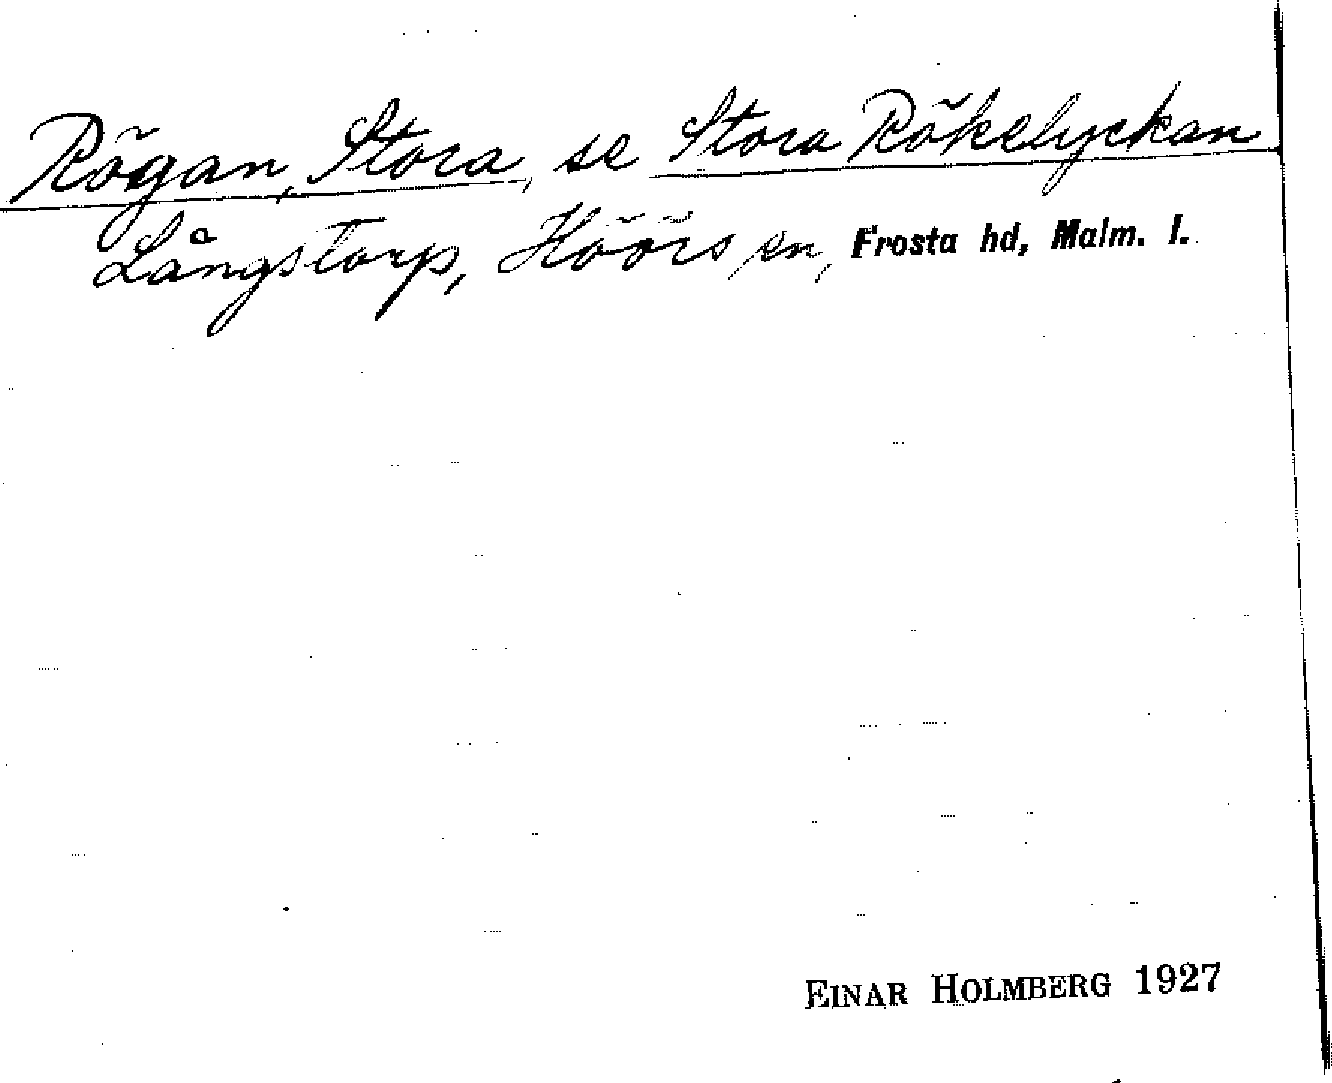 Rögan, Stora, se Stora Rökelyckan
Långstorp, Höörs sn, Frosta hd, Malm. l.
EINAR HOLMBERG 1927